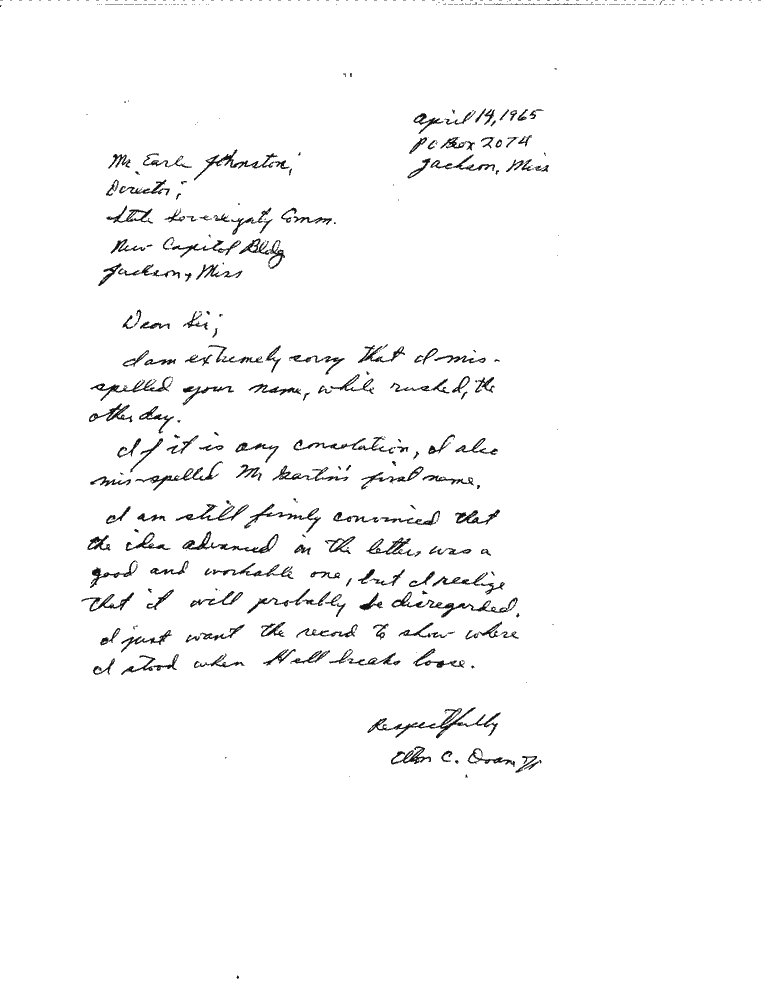 April 14, 1965
PO Box 2074
Jackson, Miss
Mr Earle Johnston,
Director,
State Sovereignty Comm.
New Capitol Bldg
Jackson, Miss
Dear Sir;
I am extremely sorry that I mis-
spelled your name, while rushed, the
other day.
If it is any consolation, I also
mis-spelled Mr first name.
I am still firmly convinced that
the idea advanced in the letters was a
good and workable one, but I realize
that it will probably be disregarded.
I just want the record to show where
I stood when Hell breaks loose.
Respectfully
C.